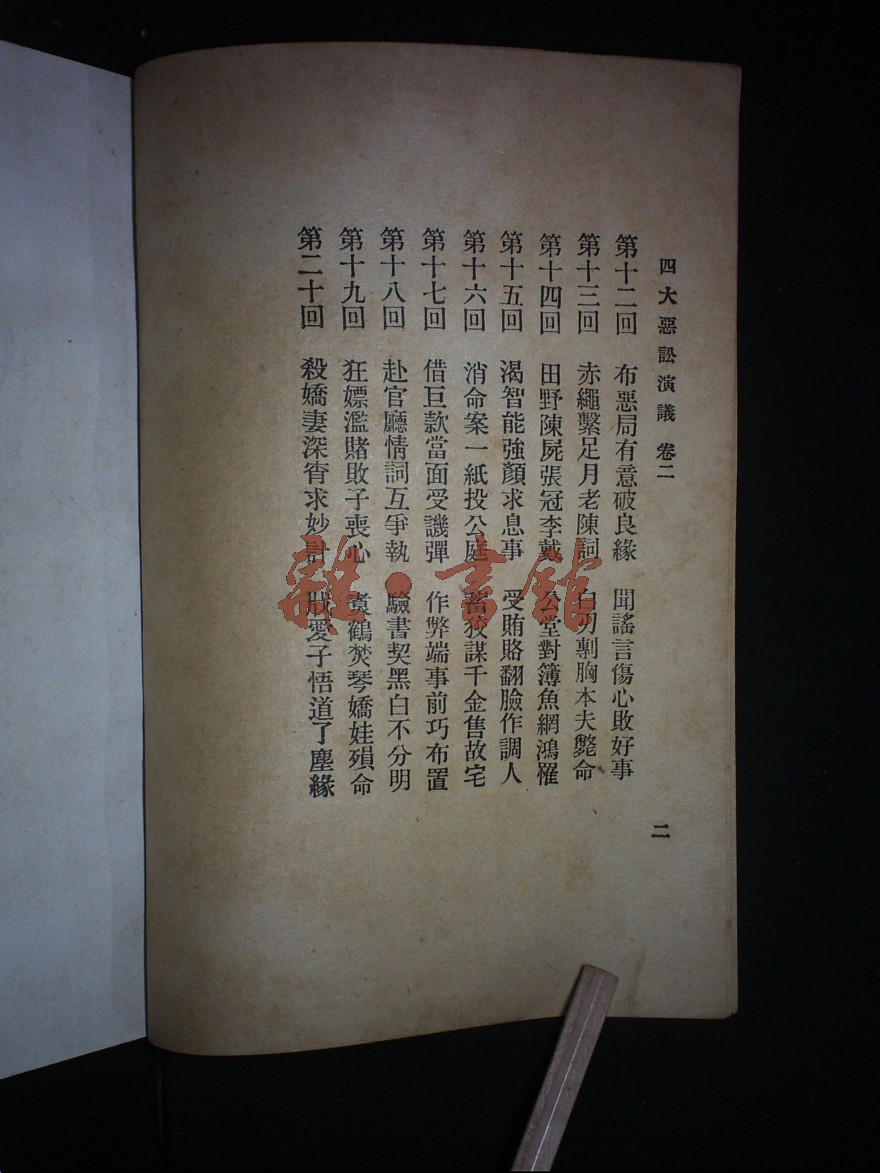 四大惡訟演議 卷二
二
第十二回 布惡局有意破良緣 聞謠言傷心敗好事
第十三回 赤繩繫足月老陳詞 白刃剚胸本夫斃命
第十四回 田野陳屍張冠李戴 公堂對簿魚網鴻罹
第十五回 渴智能強顏求息事 受賄賂翻臉作調人
第十六回 消命案一紙投公庭 蓄狡謀千金售故宅
第十七回 借巨款當面受譏彈 作弊端事前巧布置
第十八回 赴官廳情詞互爭執 驗書契黑白不分明
第十九回 狂嫖濫賭敗子喪心 煑鶴焚琴嬌娃殞命
第二十回 殺嬌妻深宵求妙計 戕愛子悟道了塵緣
雜·書館